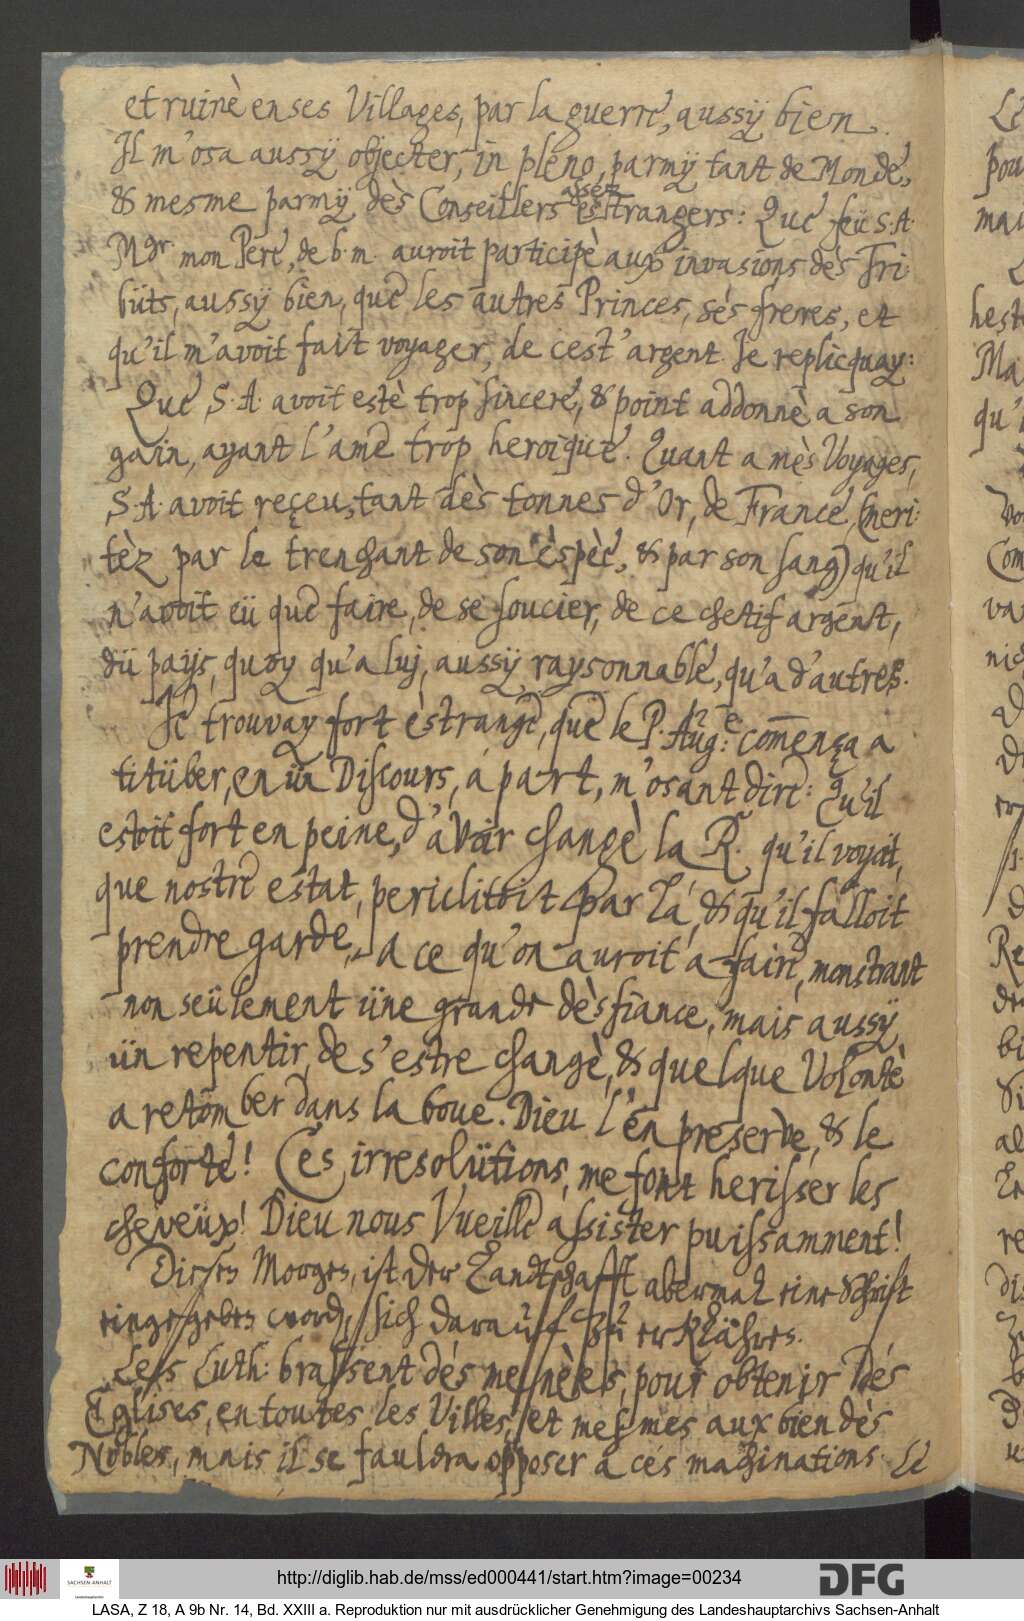 et ruinè en ses Villages, par la guerre, aussÿ bien.
Il m'osa aussÿ objecter, in pleno, parmÿ tant de Monde,
& mesme parmÿ dès Conseillers assèz estrangers: Que feü S. A.
Mgr. mon Pere, de b. m. auroit participè aux invasions dès Tri-
büts, aussÿ bien, que les autres Princes, sès freres, et
qu'il m'avoit fait voyager, de cest' argent. Je replicquay:
Que S. A. avoit estè trop sincere, & point addonnè a son
gain, ayant l'ame trop heroique. Quant a mès Voyages,
S. A. avoit reçeu, tant dès tonnes d'Or, de France, (meri-
tèz par le trenchant de son èspèe, & par son sang) qu'il
n'avoit eü que faire, de se soucier, de ce chetif argent,
dü païjs, quoy qu'a luj, aussÿ raysonnable, qu'a d'autres.
Je trouvay fort èstrange, que le P. Aug:e com̄ença a
titüber, en ün Discours, a part, m'osant dire: Qu'il
estoit fort en peine, d'avoir changè la R. qu'il voyoit,
que nostre estat, periclitoit par là, & qu'il falloit
prendre garde, a ce qu'on auroit a faire, monstrant
non seülement üne grande dèsfiance, mais aussÿ
ün repentir, de s'estre changè, & quelque Volontè
a retomber dans la boue. Dieu l'en preserve, & le
conforte! Cès irresolütions, me font herisser les
cheveüx! Dieu nous Vueille assister puissamment!
Diesen Morgen, ist der Landtschafft abermal eine Schrift
eingegeben word, sich darauff zu erklähren.
Les Luth: brassent dés menèes, pour obtenir dés
Eglises, en toutes les Villes, et mesmes aux bien dès
Nobles, mais il se fauldra opposer a cés machinations. Le
http://diglib.hab.de/mss/ed000441/start.htm?image=00234
SACHSEN-ANHALT
DFG
LASA, Z 18, A 9b Nr. 14, Bd. XXIII a. Reproduktion nur mit ausdrücklicher Genehmigung des Landeshauptarchivs Sachsen-Anhalt